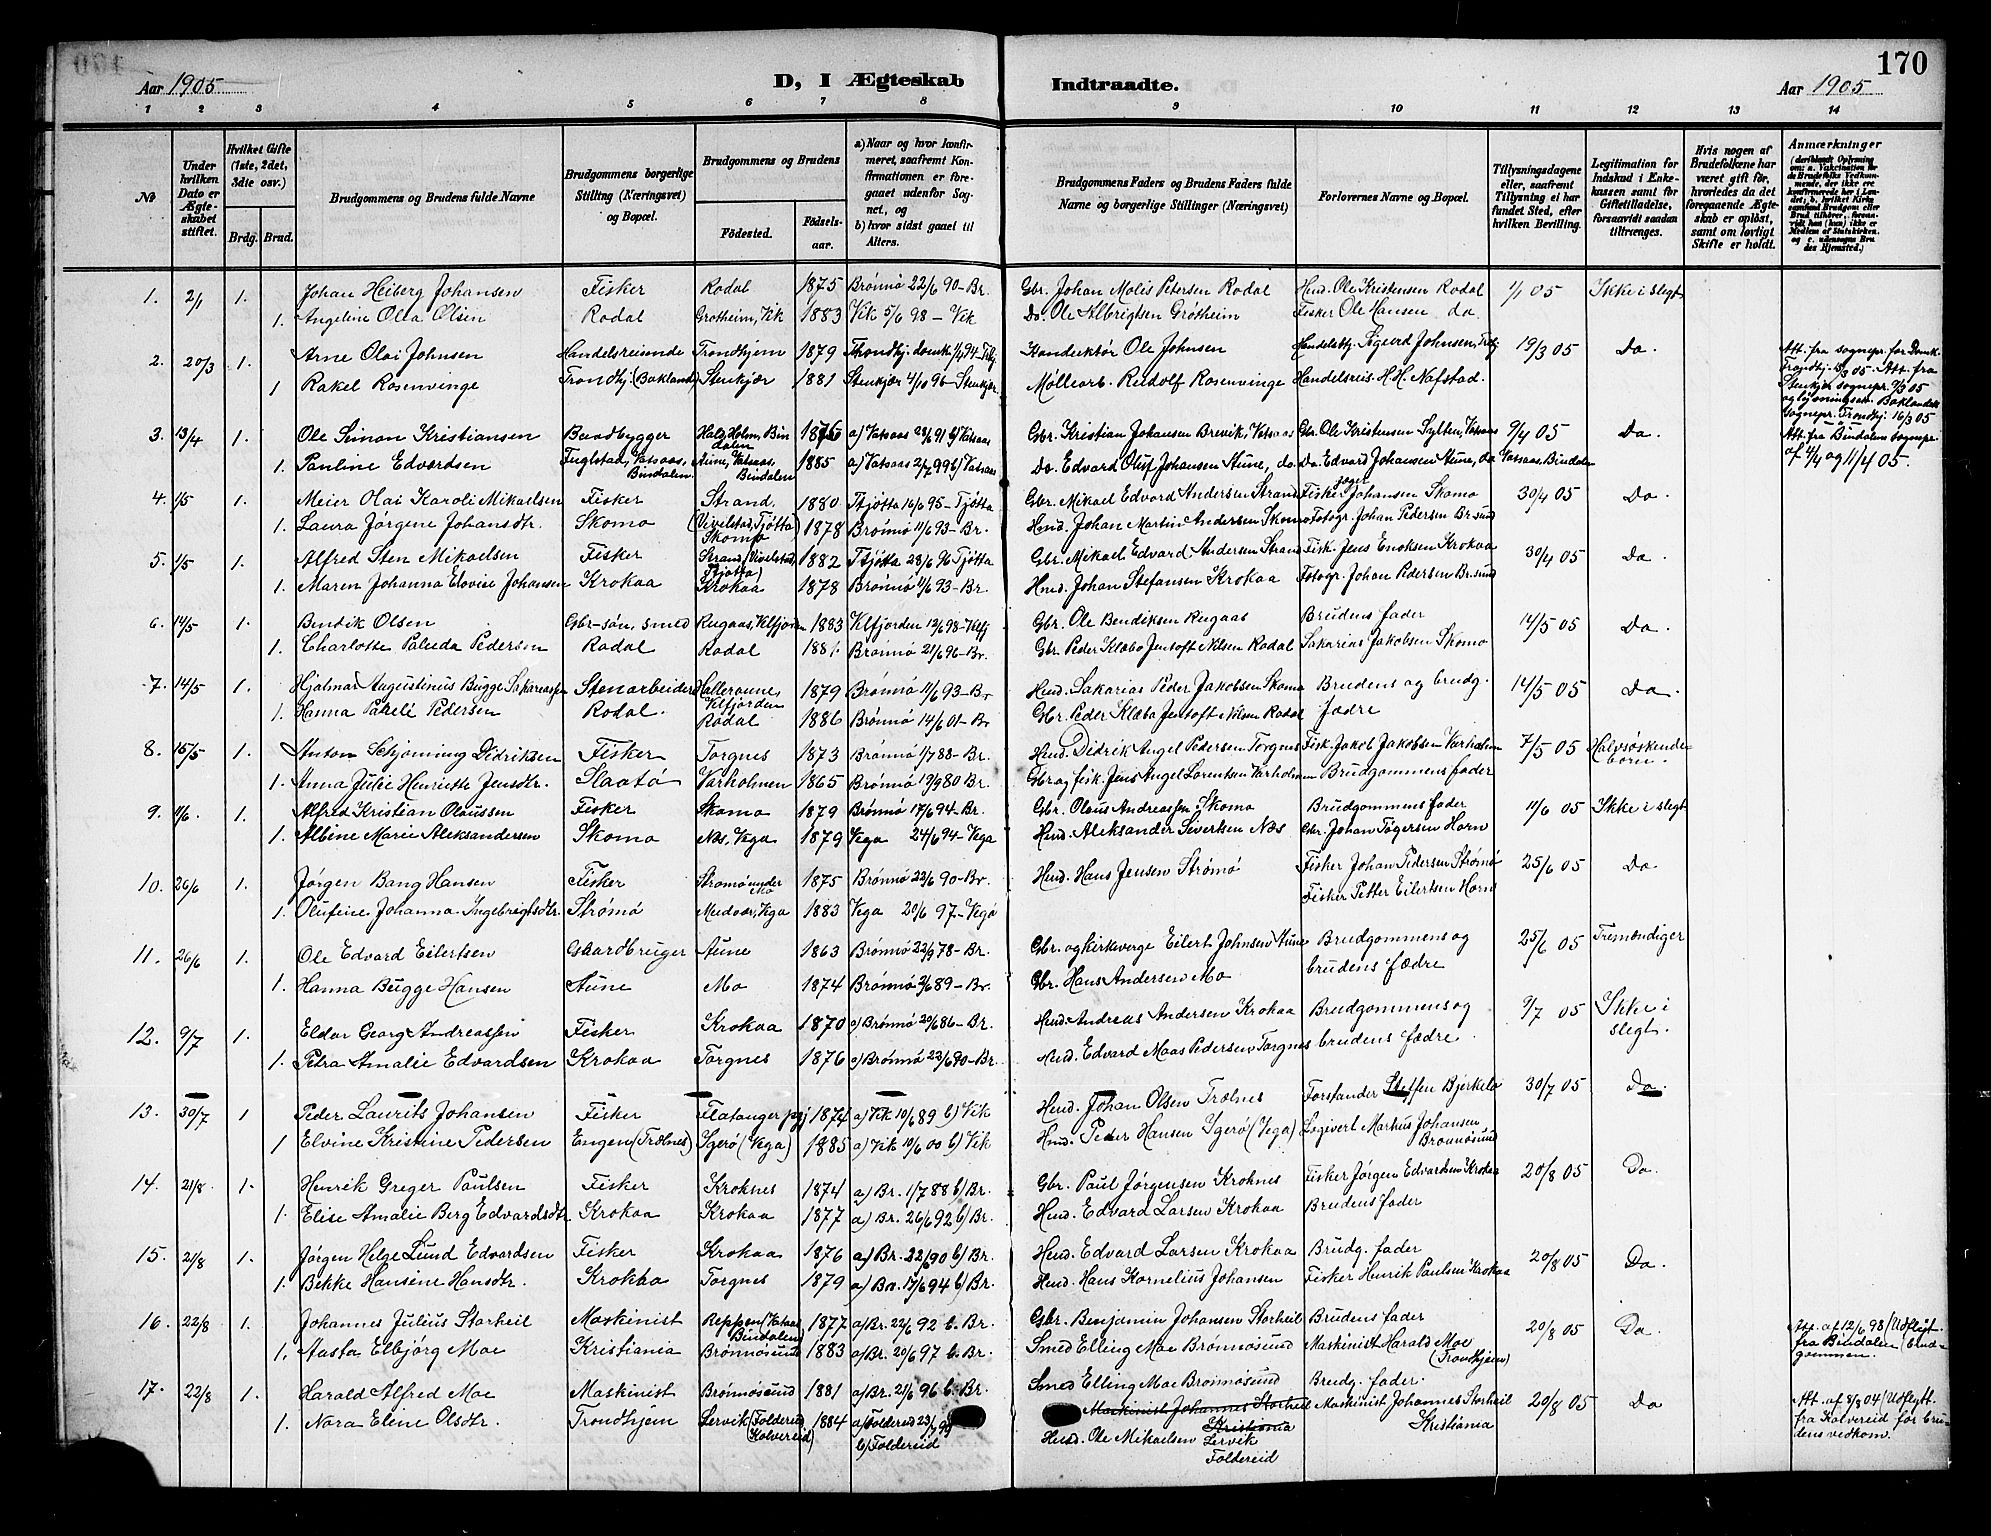 170
Aar 1905 D, I Ægteskab Indtraadte. Aar 1905
1 2 3 4 5 6 7 8 9 10 11 12 13 14
№
Under hvilken Dato er Ægteskabet stiftet.
Hvilket Gifte (1ste, 2det, 3die osv.)
Brdg. Brud.
Brudgommens og Brudens fulde Navne
Brudgommens borgerlige Stilling (Næringsvei) og Bopæl.
Brudgommens og Brudens
Fødested. Fødselsaar.
a) Naar og hvor konfirmeret, saafremt Konfirmationen er foregaaet udenfor Sognet, og
b) hvor sidst gaaet til Alters.
Brudgommens Faders og Brudens Faders fulde Navne og borgerlige Stillinger (Næringsvei)
Forlovernes Navne og Bopæl.
Tillysningsdagene eller, saafremt Tillysning ei har fundet Sted, efter hvilken Bevilling.
Legitimation for Indskud i Enkekassen samt for Giftetilladelse, forsaavidt saadan tiltrænges.
Hvis nogen af Brudefolkene har været gift før, hvorledes da det foregaaende Ægteskab er opløst, samt om lovligt Skifte er holdt.
Anmærkninger
1. 2/1 1. Johan Heiberg Johansen Fisker Rodal 1875 Brønnø 22/6 90 - Br. Gbr. Johan Molis Petersen Rodal Hmd. Ole Kristensen Rodal 1/1 05 Ikke i slegt
1. Angeline Olea Olsen Rodal Grøtheim, Vik 1883 Vik 5/6 98 - Vik Do. Ole Albrigtsen Grøtheim Fisker Ole Hansen do.
2. 20/3 1. Arne Olai Johnsen Handelsreisende Trondhjem 1879 Trondhj. domk. 1/4 94 Trhj. Konduktør Ole Johnsen Handelsbtj. Sigurd Johnsen, Trhj. 19/3 05 Do.
1 Rakel Rosenvinge Trondhj. (Bakland) Stenkjær 1881 Stenkjær 4/10 96 - Stenkjær. Møllearb. Rudolf Rosenvinge Handelsreis. H. H. Nafstad.
3. 13/4 1. Ole Simon Kristiansen Baadbygger Bindalen 1876 a) Vatsaas 23/6 91 b) Vatsaas Gbr. Kristian Johansen Brevik, Vatsaas Gbr. Ole Kristensen Sylten, Vatsaas 9/4 05 Do. Att. fra Bindalens sognepr.
1. Pauline Edvardsen Fuglstad, Vatsaas, Bindalen Aune, Vatsaas, Bindalen 1885 a) Vatsaas 2/7 99 b) Vatsaas Do. Edvard Oluf Johansen Aune, do. Do. Edvard Johansen Aune, do. Vatsaas, Bindalen af 4/4 og 11/4 05.
4. 1/5 1. Meier Olai Karoli Mikaelsen Fisker Strand. 1880 Tjøtta 16/6 95 - Tjøtta Gbr. Mikael Edvard Andersen Strand Fisker Johansen Skomo 30/4 05 Do.
1. Laura Jørgine Johansdtr. Skomo (Vivelstad, Tjøtta) Skomo 1878 Brønnø 11/6 93 - Br. Hmd. Johan Martin Andersen Skomo Fotogr. Johan Pedersen Br.sund
5. 1/5 1. Alfred Sten Mikaelsen Fisker Strand (Vivelstad, Tjøtta) 1882 Tjøtta 28/6 96 Tjøtta Gbr. Mikael Edvard Andersen Strand Fisk. Jens Enoksen Krokaa 30/4 05 Do.
1. Maren Johanna Elovise Johansen Krokaa Krokaa 1878 Brønnø 11/6 93 - Br. Hmd. Johan Stefansen Krokaa Fotogr. Johan Pedersen Br.sund
6. 14/5 1. Bendik Olsen Gbr-søn, smed Rugaas, Velfjorden 1883 Velfjorden 12/6 98 - Velfj. Gbr. Ole Bendiksen Rugaas Brudens fader 14/5 05 Do.
1. Charlotte Paluda Pedersen Rodal Rodal 1881 Brønnø 21/6 96 - Br. Gbr. Peder Klæbo Jentoft Nilsen Rodal Sakarias Jakobsen Skomo
7. 14/5 1. Hjalmar Augustinus Bugge Sakariassen Stenarbeider Velfjorden 1879 Brønnø 11/6 93 - Br Hmd. Sakarias Peder Jakobsen Skomo Brudens og brudg. 14/5 05 Do.
1. Hanna Pareli Pedersen Rodal. Rodal 1886 Brønnø 14/6 01 - Br Gbr. Peder Klæbo Jentoft Nilsen Rodal fædre
8. 15/5 1. Anton Schjønning Didriksen Fisker Torgnes 1873 Brønnø 1/7 88 - Br. Hmd. Didrik Angel Pedersen Torgnes Fisk. Jakob Jakobsen Varholm 7/5 05 Halvsøskendebørn.
1. Anna Julie Henriette Jensdtr. Slaatø Varholmen 1865 Brønnø 19/9 80 Br. Gbr. og fisk. Jens Angel Lorentsen Varholmen Brudgommens fader
9. 11/6 1. Alfred Kristian Olaussen Fisker Skomo 1879 Brønnø 17/6 94 - Br. Gbr. Olaus Andreassen Skomo Brudgommens fader 11/6 05 Ikke i slegt
1. Albine Marie Aleksandersen Skomo Næs, Vega 1879 Vega 24/6 94 - Vega Hmd. Aleksander Sivertsen Næs Gbr. Johan Tøgersen Horn
10. 26/6 1. Jørgen Bang Hansen Fisker Strømø under Mo 1875 Brønnø 22/6 90 - Br. Hmd. Hans Jensen Strømø Fisker Johan Pedersen Strømø 25/6 05 Do
1. Olufine Johanna Ingebrigtsdtr. Strømø Mudvær, Vega 1883 Vega 20/6 97 - Vega Fisker Petter Eilertsen Horn
11. 26/6 1. Ole Edvard Eilertsen Gaardbruger Aune 1863 Brønnø 22/9 78 - Br. Gbr. og kirkeverge Eilert Johnsen Aune Brudgommens og 25/6 05 Tremændinger
1. Hanna Bugge Hansen Aune Mo 1874 Brønnø 2/6 89 - Br. Gbr. Hans Andersen Mo brudens fædre
12. 9/7 1. Eldar Georg Andreassen Fisker Krokaa 1870 a) Brønnø 20/6 86 - Br. Hmd. Andreas Andersen Krokaa Brudgommens og 9/7 05 Ikke i slegt.
1. Petra Amalie Edvardsen Krokaa Torgnes 1876 a) Brønnø 22/6 90 - Br. Hmd. Edvard Maas Pedersen Torgnes brudens fædre
13. 30/7 1 Peder Laurits Johansen Fisker Flatanger pgj 1874 a) Vik 10/6 89 b) Vik Hmd. Johan Olsen Trælnes Forstander Steffen Bjerkelo 30/7 05 Do.
1 Elvine Kristine Pedersen Engen (Trælnes) Ygerø (Vega) 1885 a) Vik 10/6 00 b) Vik Hmd. Peder Hansen Ygerø (Vega) Logivert Markus Johansen Brønnøsund
14. 21/8 1. Henrik Greger Paulsen Fisker Kroknes 1874 a) Br. 1/7 88 b) Br. Gbr. Paul Jørgensen Kroknes Fisker Jørgen Edvardsen Krokaa 20/8 05 Do.
1. Elise Amalie Berg Edvardsdtr Krokaa Krokaa 1877 a) Br. 26/6 92 b) Br. Hmd. Edvard Larsen Krokaa Brudens fader
15. 21/8 1. Jørgen Helge Lund Edvardsen Fisker Krokaa 1876 a) Br. 22/6 90 b) Br. Hmd. Edvard Larsen Krokaa Brudg. fader 20/8 05 Do.
1. Bekke Hansine Hansdtr. Krokaa Torgnes 1879 a) Br. 17/6 94 b) Br. Hmd. Hans Kornelius Johansen Fisker Henrik Paulsen Krokaa
16. 22/8 1. Johannes Julius Storheil Maskinist Reppen (Vatsaas Bindalen) 1877 a) Br. 22/6 92 b. Br. Gbr. Benjamin Johansen Storheil Brudens fader 20/8 05 Do. Att. af 12/6 98 (Udflyt. fra Bindalen (brudgommen.
1. Aasta Elbjørg Moe Kristiania Brønnøsund 1883 a) Br. 20/6 97 b. Br. Smed Elling Moe Brønnøsund Maskinist Harald Moe (Trondhjem)
17. 22/8 1. Harald Alfred Moe Maskinist Brønnøsund 1881 a) Br. 21/6 96 b. Br. Smed Elling Moe Brønnøsund Brudg. fader. 20/8 05 Do Att. af 8/8 04 (Udflytt. fra Kolvereid for brudens vedkom.
1. Nora Elene Olsdtr. Trondhjem Lervik (Foldereid Kolvereid) 1884 a) Foldereid 23/7 99 b) Foldereid Maskinist Johannes Storheil Kristiania Maskinist Johannes Storheil Kristiania
Hmd. Ole Mikaelsen Lervik Foldereid